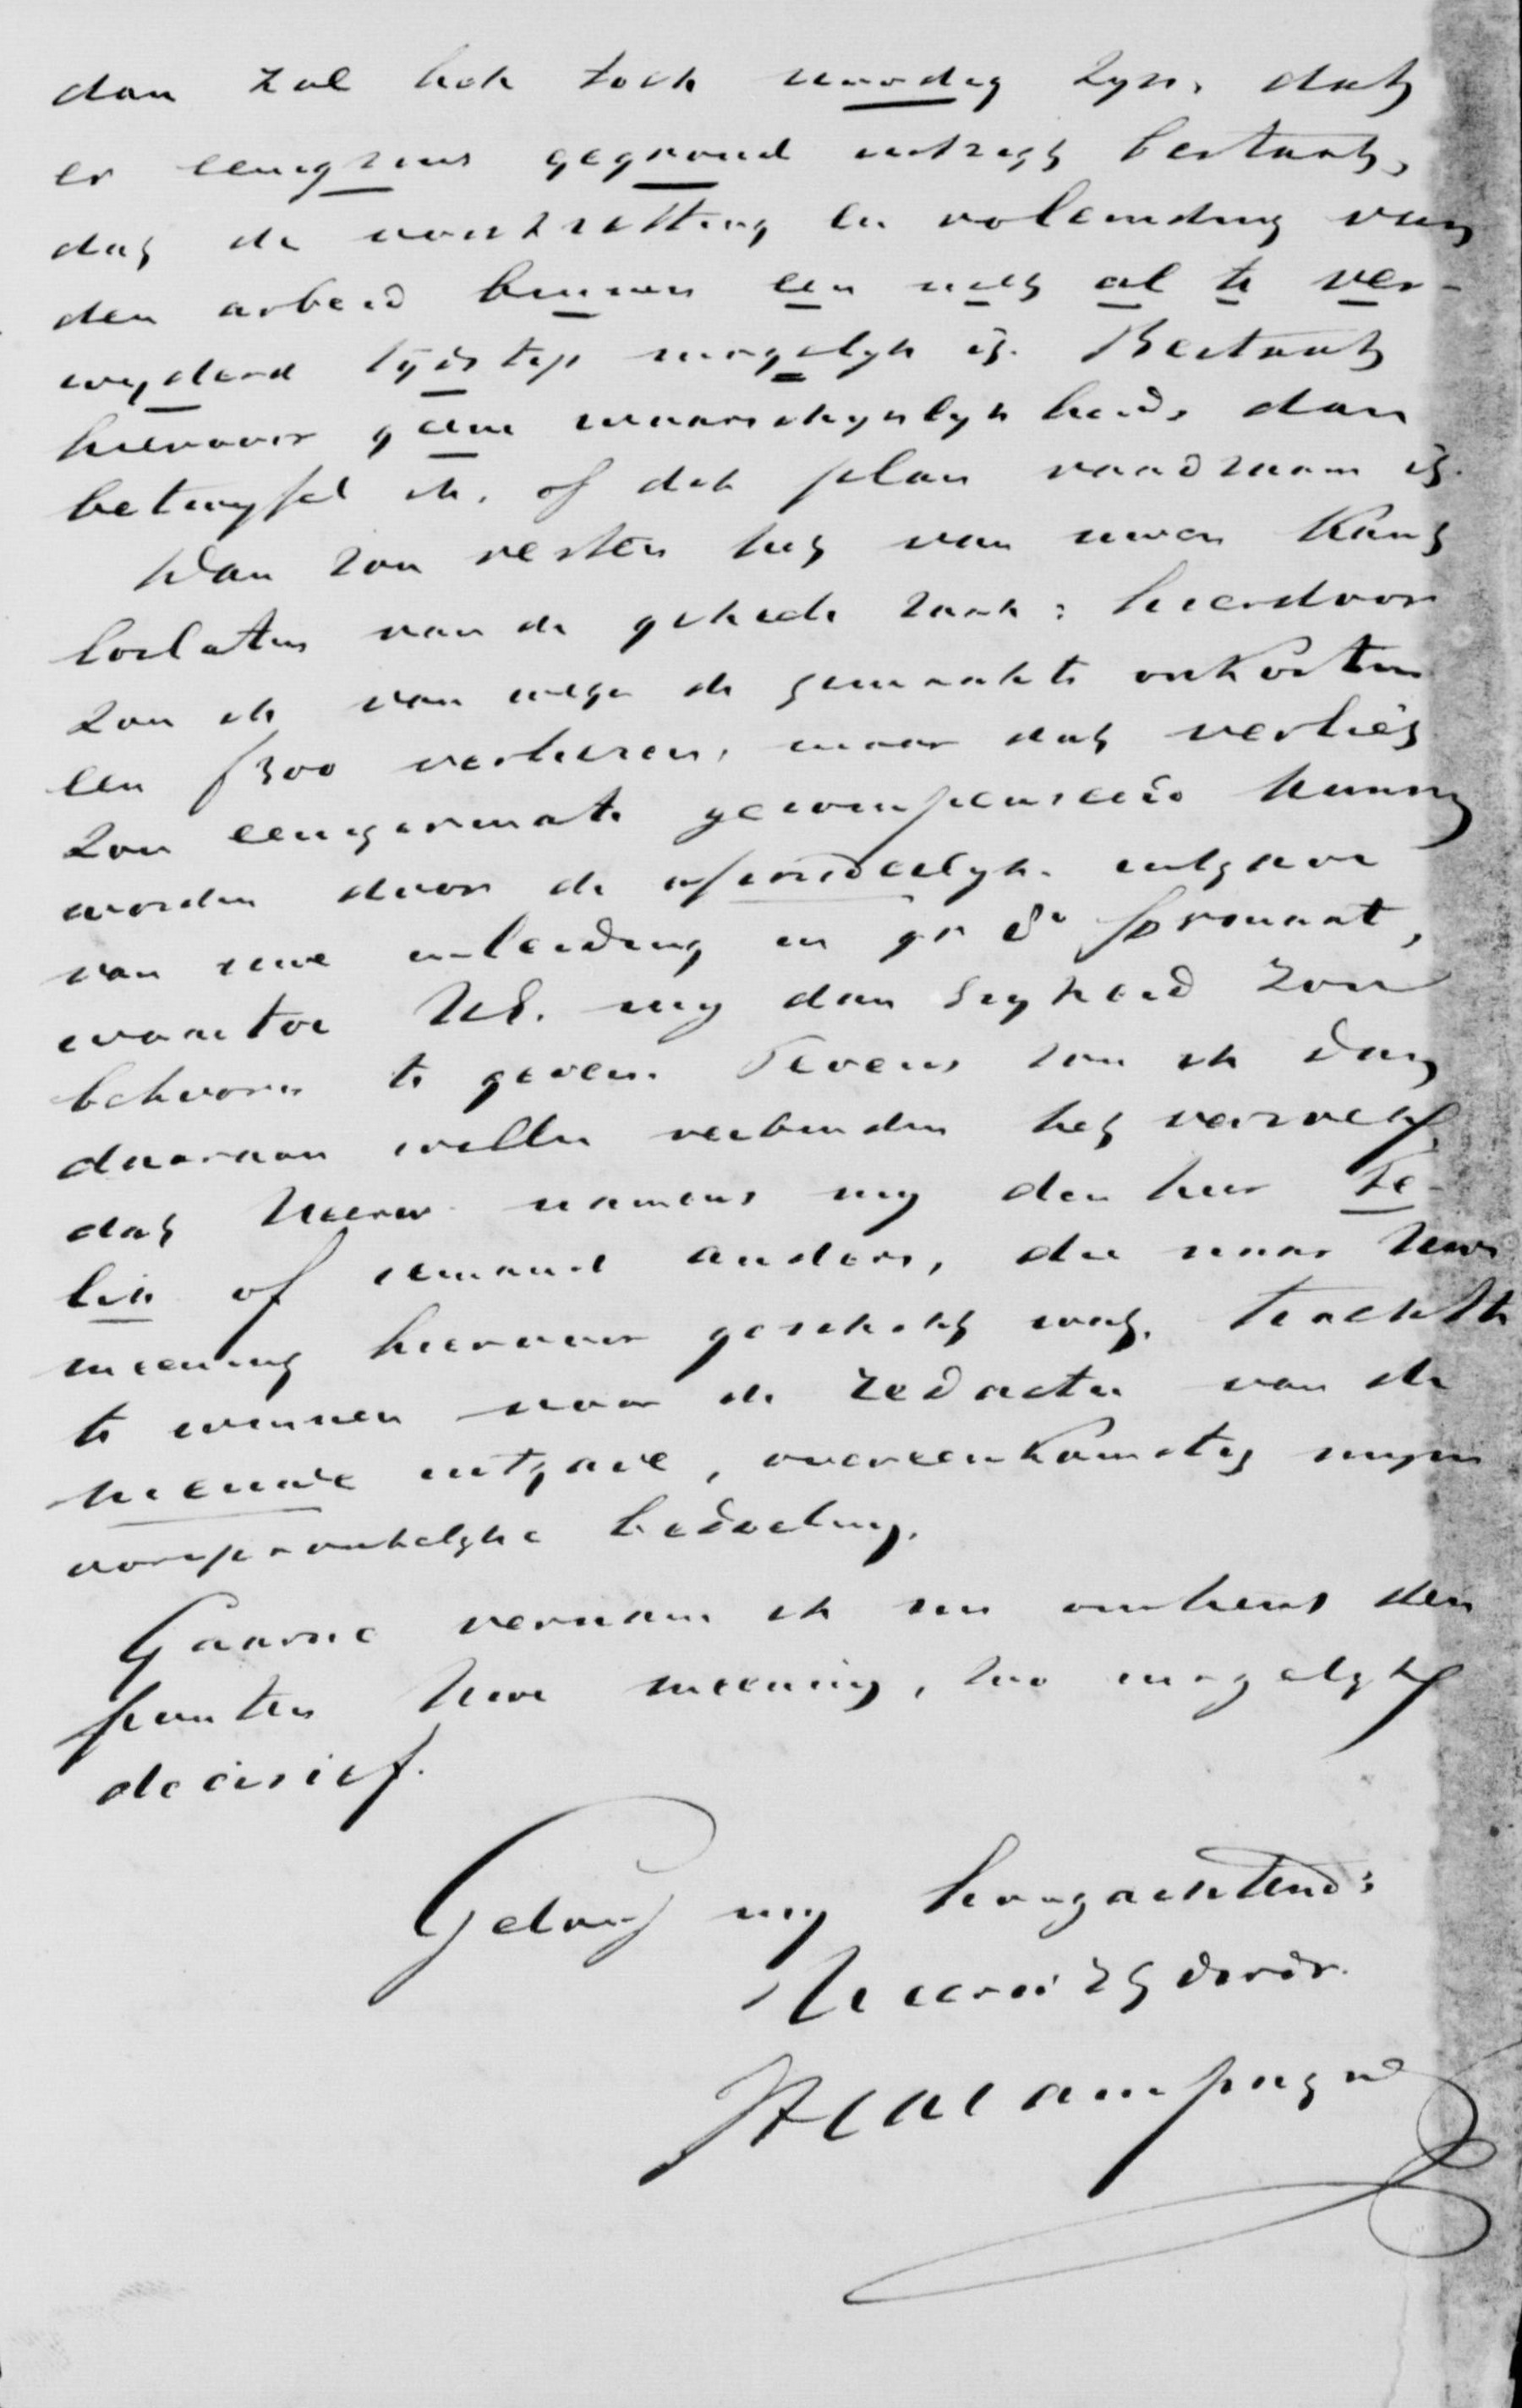 dan zal het toch noodig zyn, dat
er eenigzins gegrond uitzigt bestaat,
dat de voortzetting en voleinding van
den arbeid binnen een niet al te ver-
wyderd tijdstip mogelyk is. Bestaat
hiervoor geene waarschynlykheid, dan
betwyfel ik, of dat plan raadzaam is.
Dan zou resten het van uwen kant
loslaten van de geheele zaak: hierdoor
zou ik van wege de gemaakte onkosten
een f300 verliezen, maar dat verlies
zou eenigermate gecompenseerd kunnen
worden door de afzonderlyke uitgave
van uwe inleiding in gr 8o formaat,
waartoe UE. my dan vryheid zou
behooren te geven. Tevens zou ik dan
daaraan willen verbinden het verzoek,
dat Uwerw. namens my den heer Te-
lin of iemand anders, die naar Uwe
meening hiervoor geschikt was, trachtte
te winnen voor de redactie van de
nieuwe uitgave, overeenkomstig myne
oorspronkelyke bedoeling.
Gaarne vernam ik nu omtrent den
punten Uwe meening, zoo mogelyk
decisief.
Geloof my hoogachtend:
Uweerw. dw dr.
Campagne